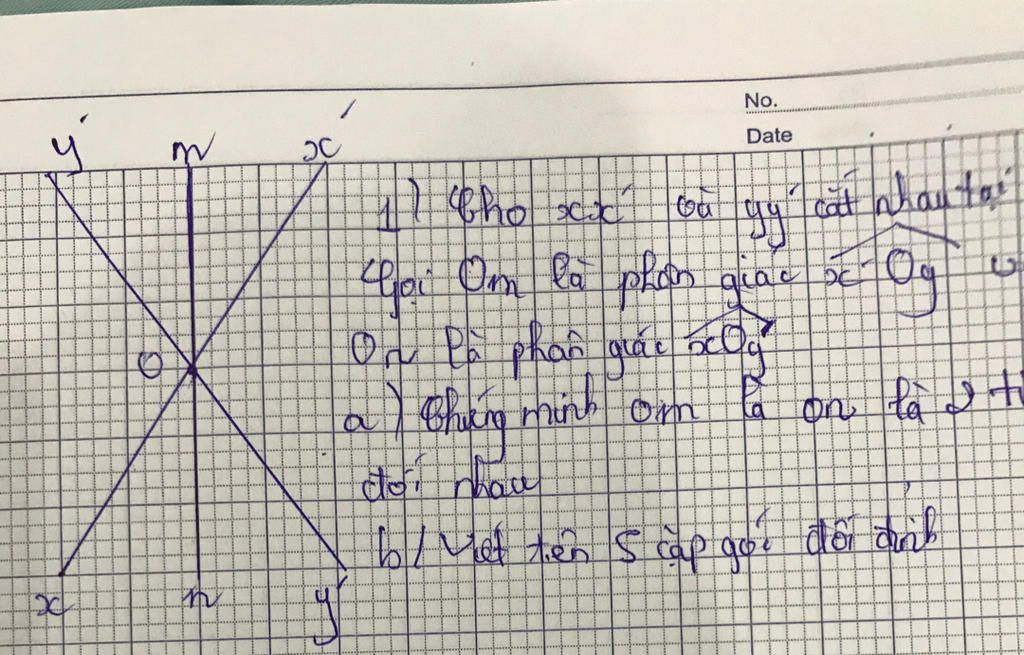 No.
Date
y' m x'
1) Cho xx' và yy' cắt nhau tại
Gọi Om là phân giác x'Oy
O
On là phân giác xOy'
a) Chứng minh om là on là 2
đối nhau
b) Viết tên 5 cặp góc đối đỉnh
x n y'